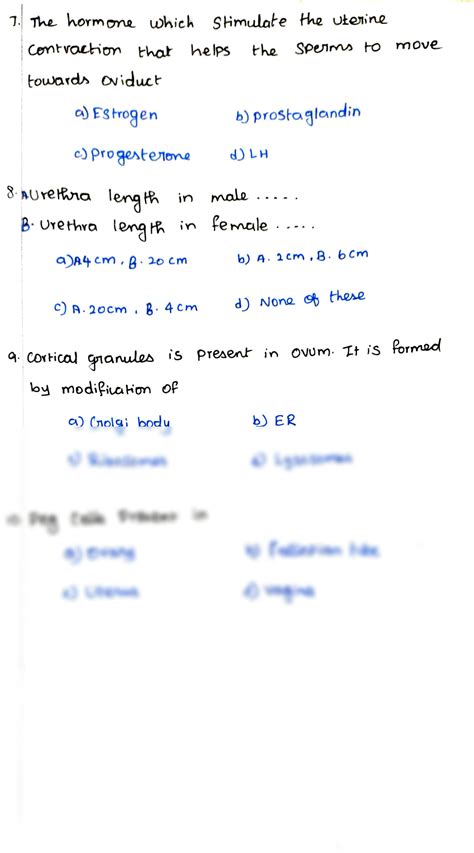 7. The hormone which Stimulate the uterine
contraction that helps the Sperms to move
towards oviduct
a) Estrogen b) prostaglandin
c) Progesterone d) LH
8. A Urethra length in male .....
B. Urethra length in female .....
a) A 4 cm, B. 20 cm b) A. 2 cm, B. 6 cm
c) A. 20cm, B. 4 cm d) None of these
9. Cortical granules is Present in ovum. It is formed
by modification of
a) Golgi body b) ER